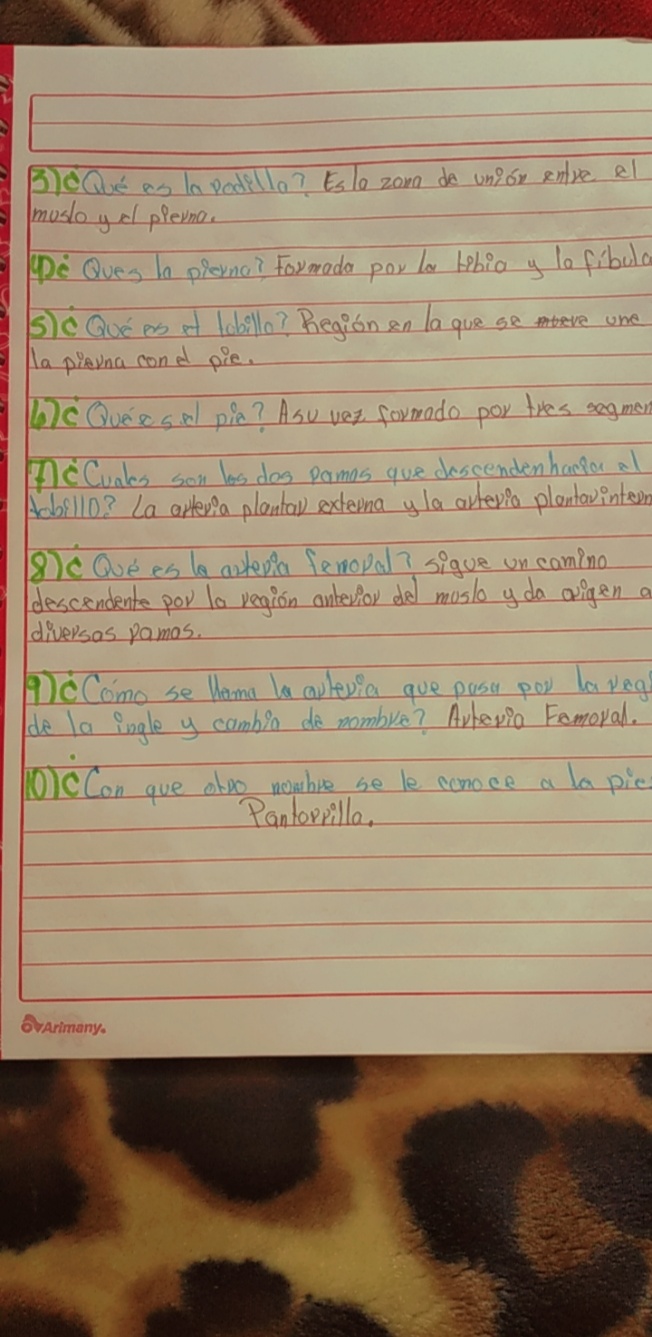 3) ¿Qué es la rodilla? Es la zona de unión entre el
muslo y el pierna.
4) ¿Ques la pierna? Formada por la tibia y la fíbula
5) ¿Qué es el tobillo? Región en la que se une
la pierna con el pie.
6) ¿Qué es el pie? A su vez formado por tres segmen
7) ¿Cuales son los dos ramas que descenden hacia el
tobillo? La arteria plantar externa y la arteria plantar intern
8) ¿Qué es la arteria femoral? sigue un camino
descendente por la región anterior del muslo y da origen a
diversas ramas.
9) ¿Cómo se llama la arteria que pasa por la reg
de la ingle y cambia de nombre? Arteria Femoral.
10) ¿Con que otro nombre se le conoce a la pie
Pantorrilla.
Arimany.